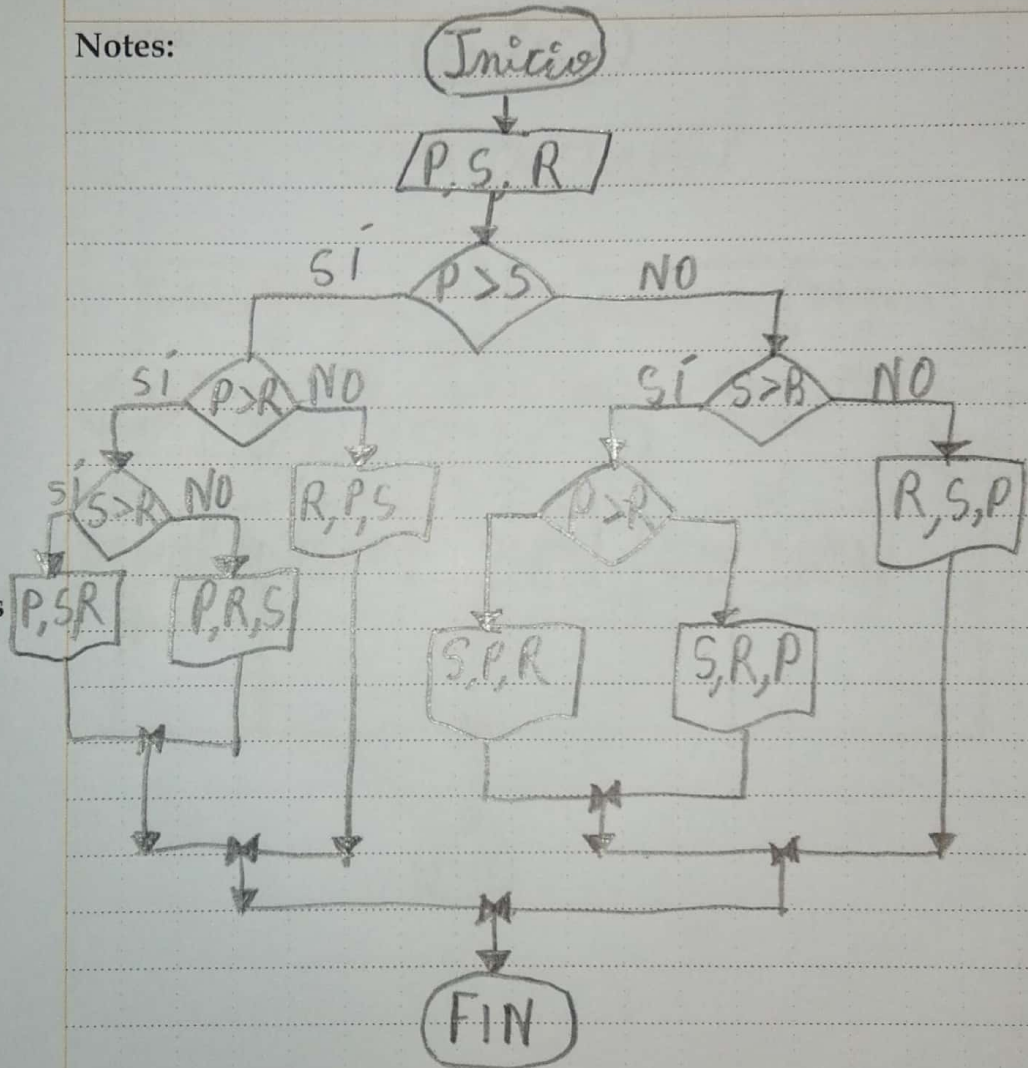 Notes:
Inicio
P, S, R
P > S
SÍ
NO
P>R
SÍ
NO
S>R
SÍ
NO
S>R
SÍ
NO
R,P,S
P>R
R,S,P
P,S,R
P,R,S
S,P,R
S,R,P
FIN